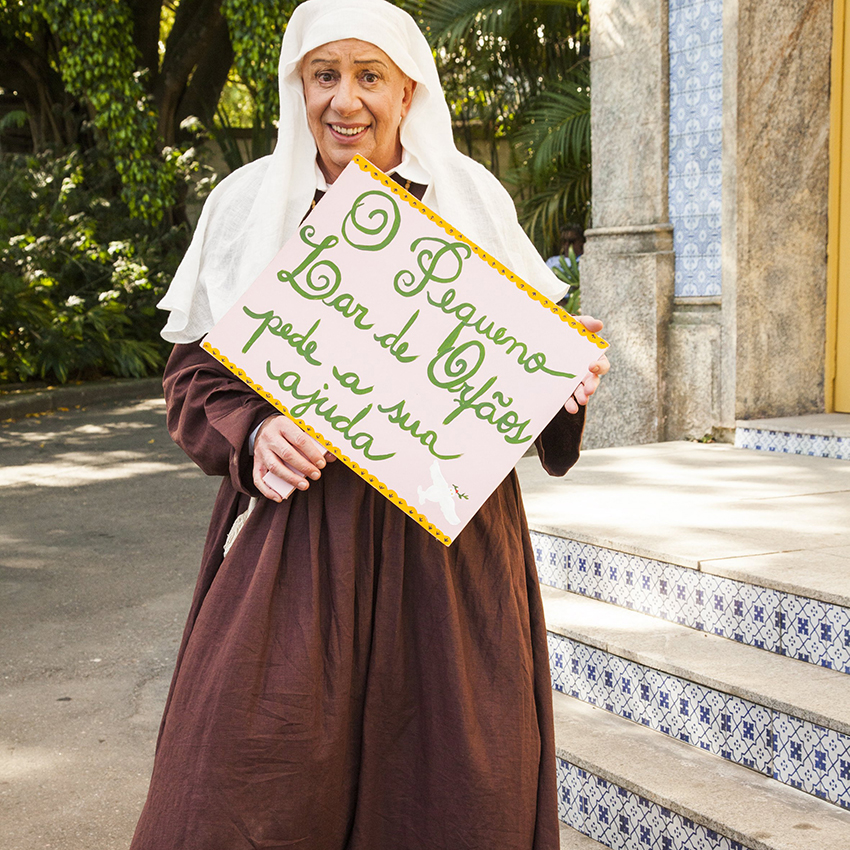 O Pequeno
Lar de Orfãos
pede a sua
ajuda